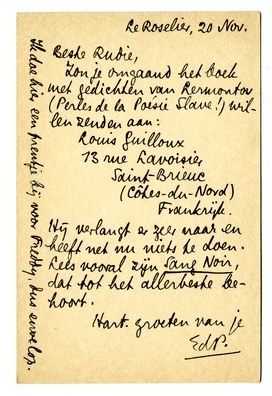 Le Roselier, 20 Nov.
Beste Rudie,
Zou je omgaand het boek
met gedichten van Lermontov
(Perles de la Poésie Slave!) wil-
len zenden aan:
Louis Guilloux
13 rue Lavoisier
Saint-Brieuc
(Côtes-du-Nord)
Frankrijk.
Hij verlangt er zeer naar en
heeft net nu niets te doen.
Lees vooral zijn Sang Noir,
dat tot het allerbeste be-
hoort.
Hart. groeten van je
EdP.
Ik doe hier een prentje bij voor Freddy, dus envelop.